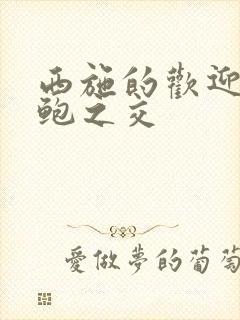 西施的歡迎
鮑之交
愛做夢的葡萄